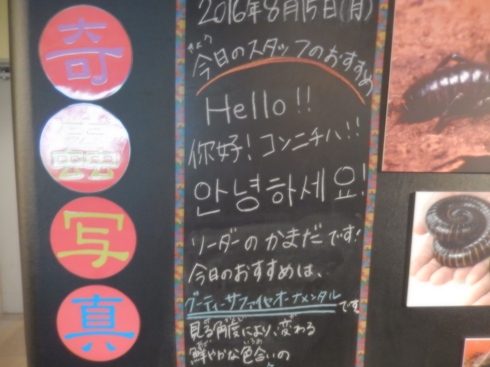 奇
蟲
写
真
2016年8月15日(月)
今日のスタッフのおすすめ
Hello!!
你好! コンニチハ!!
안녕하세요!
リーダーのかまだです!
今日のおすすめは、
グーティーサファイヤオーナメンタルです
見る角度により、変わる
鮮やかな色合いの